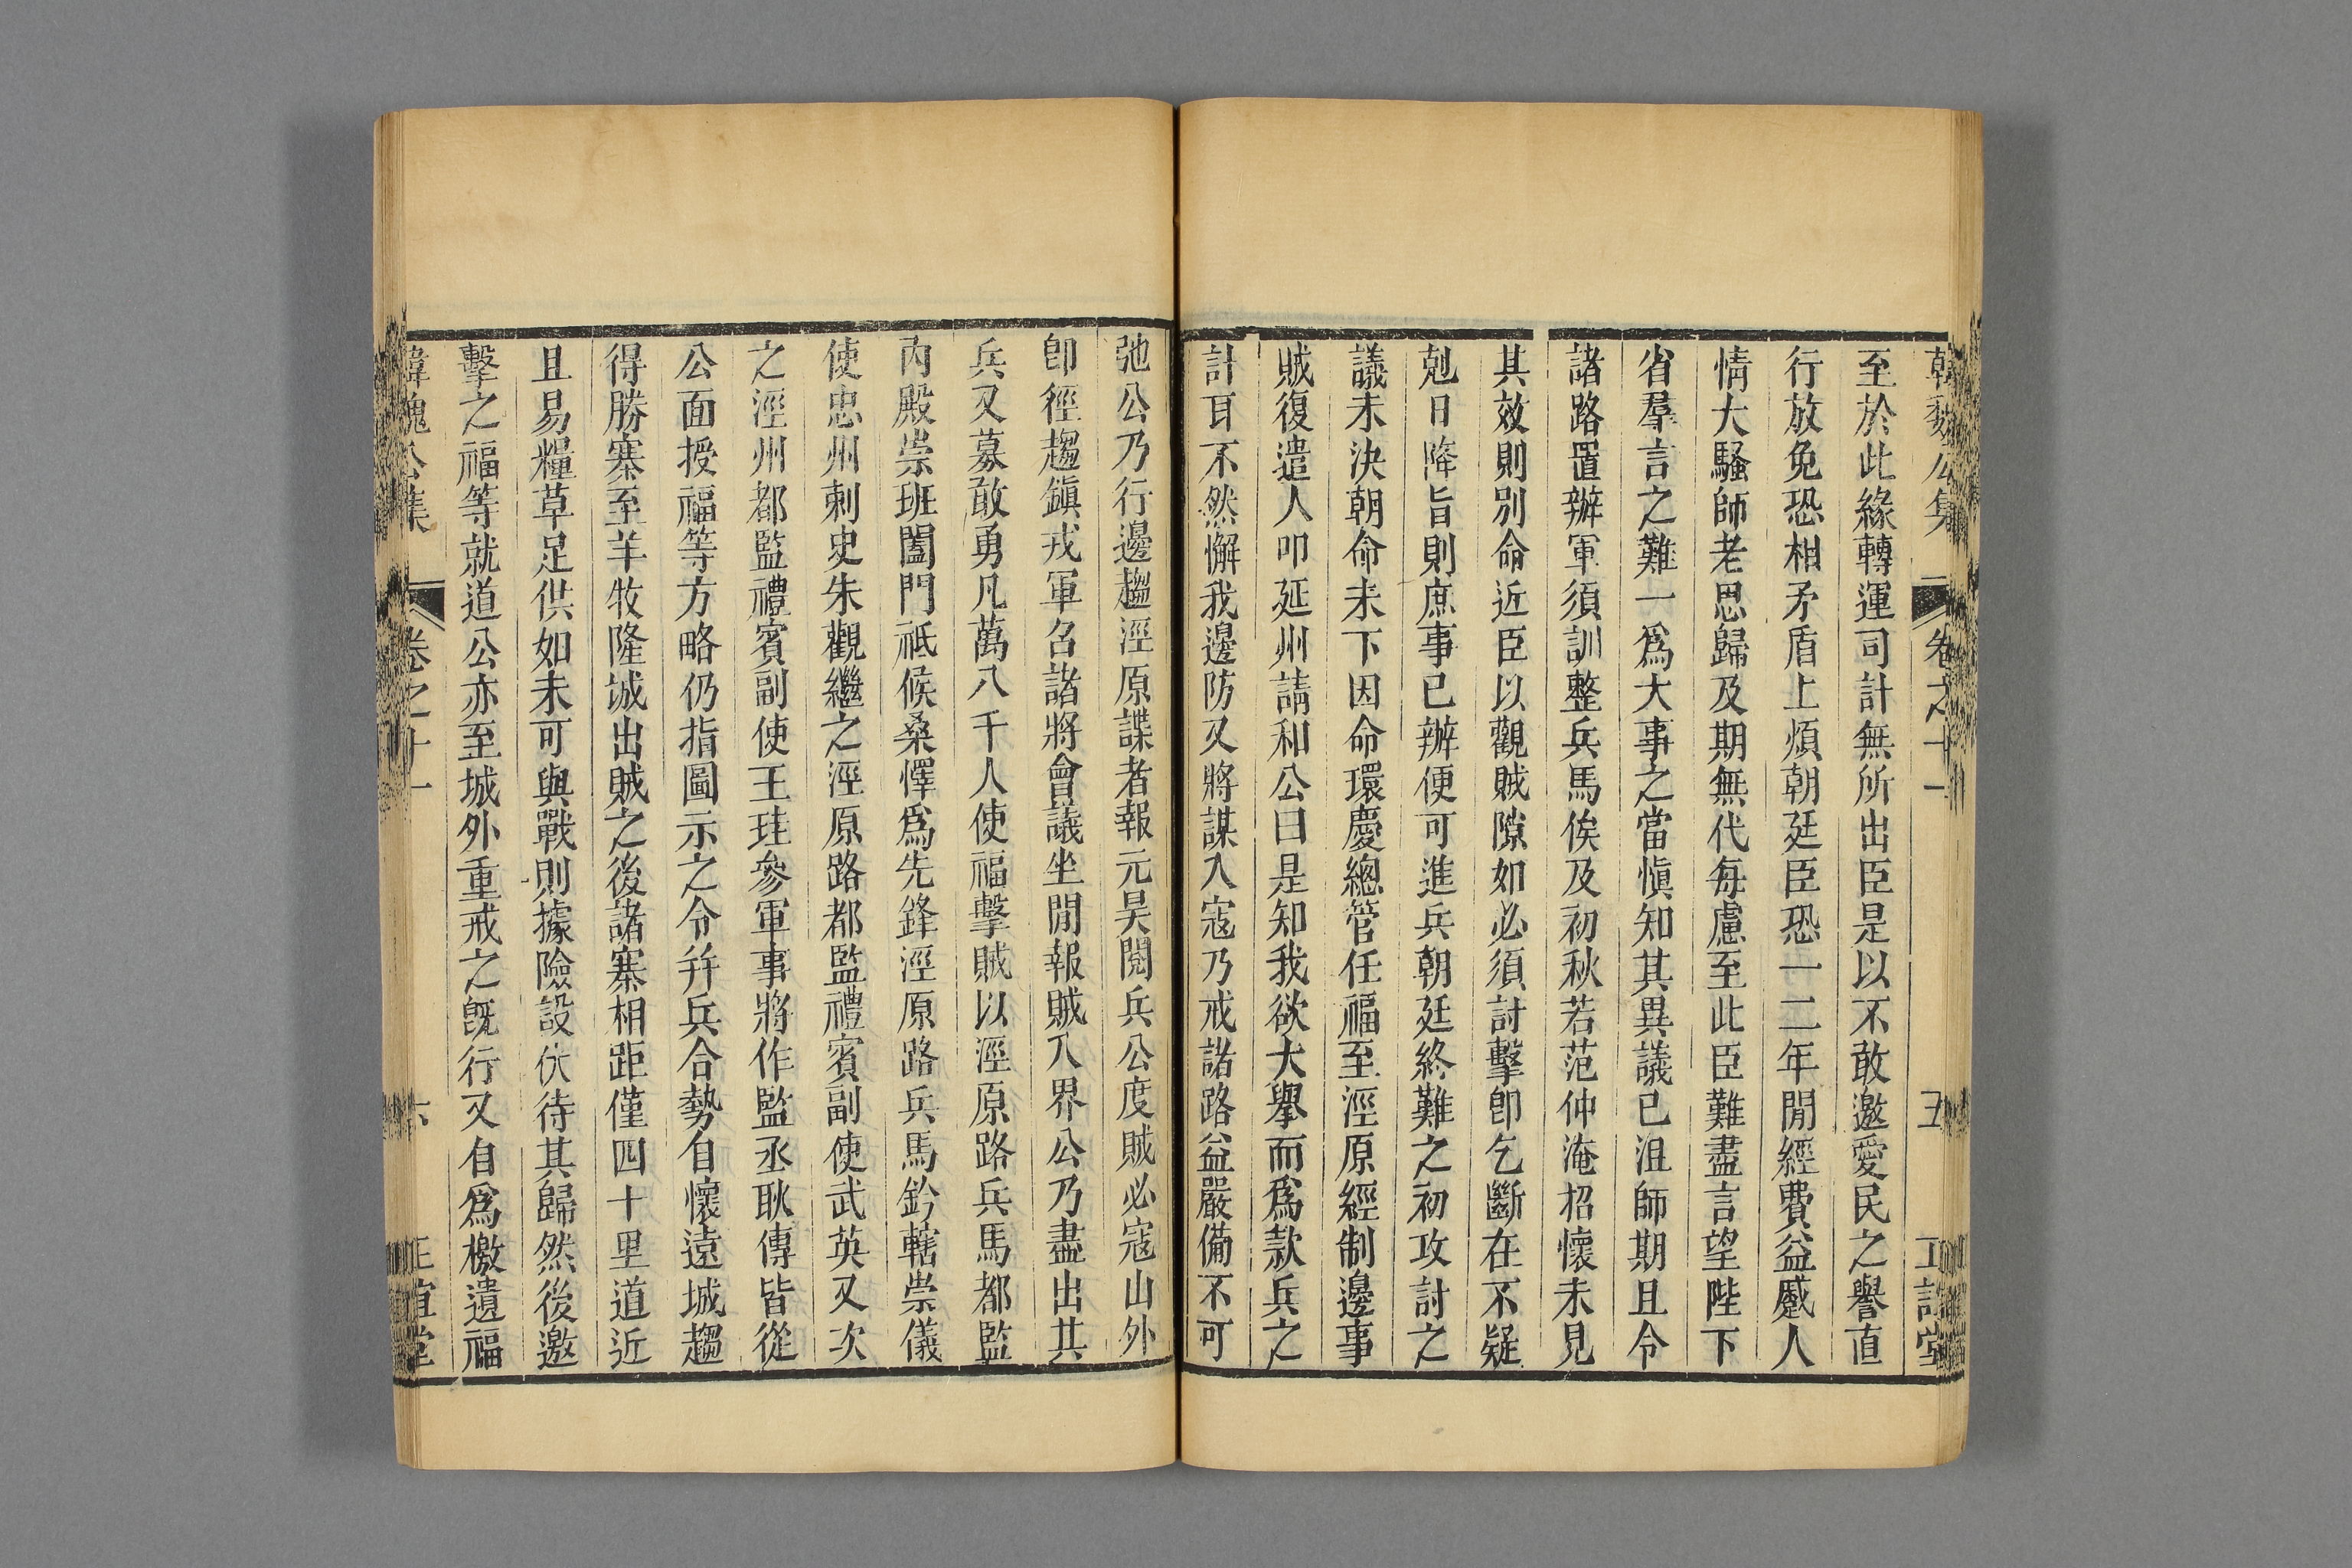 韓魏公集 卷之十一 五 正誼堂
至於此緣轉運司計無所出臣是以不敢邀愛民之譽直
行放免恐相矛盾上煩朝廷臣恐一二年閒經費益蹙人
情大騷師老思歸及期無代每慮至此臣難盡言望陛下
省羣言之難一爲大事之當愼知其異議已沮師期且令
諸路置辦軍須訓整兵馬俟及初秋若范仲淹招懷未見
其效則別命近臣以觀賊隙如必須討擊卽乞斷在不疑
剋日降旨則庶事已辦便可進兵朝廷終難之初攻討之
議未決朝命未下因命環慶總管任福至涇原經制邊事
賊復遣人叩延州請和公曰是知我欲大舉而爲款兵之
計耳不然懈我邊防又將謀入寇乃戒諸路益嚴備不可
弛公乃行邊趨涇原諜者報元昊閱兵公度賊必寇山外
卽徑趨鎭戎軍召諸將會議坐閒報賊入界公乃盡出其
兵又募敢勇凡萬八千人使福擊賊以涇原路兵馬都監
內殿崇班閤門祗候桑懌爲先鋒涇原路兵馬鈐轄崇儀
使忠州刺史朱觀繼之涇原路都監禮賓副使武英又次
之涇州都監禮賓副使王珪參軍事將作監丞耿傳皆從
公面授福等方略仍指圖示之令并兵合勢自懷遠城趨
得勝寨至羊牧隆城出賊之後諸寨相距僅四十里道近
且易糧草足供如未可與戰則據險設伏待其歸然後邀
擊之福等就道公亦至城外重戒之旣行又自爲檄遺福
韓魏公集 卷之十一 六 正誼堂